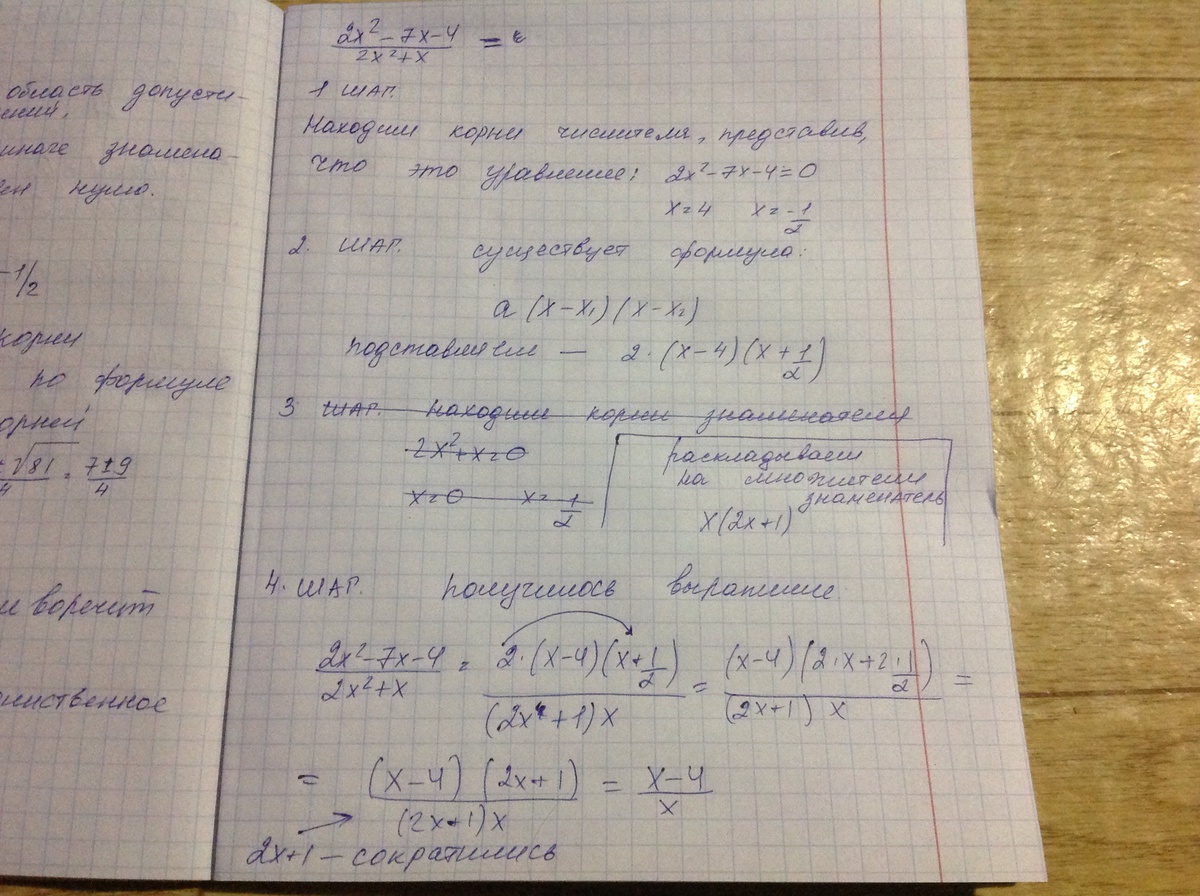 область допусти-
знамена-
нулю.
-1/2
корни
по формуле
√81 = 7±9
4 4
2x²-7x-4 / 2x²+x =
1 ШАГ.
Находим корни числителя, представив,
что это уравнение: 2x²-7x-4=0
x=4 x=-1/2
2. ШАГ. существует формула:
a(x-x₁)(x-x₂)
подставляем — 2·(x-4)(x+1/2)
3 ШАГ. находим корни знаменателя
2x²+x=0
x=0 x=1/2
раскладываем
на множители
знаменатель
x(2x+1)
4. ШАГ. получилось выражение
2x²-7x-4 / 2x²+x = 2·(x-4)(x+1/2) / (2x+1)x = (x-4)(2·x+2·1/2) / (2x+1)x =
= (x-4)(2x+1) / (2x+1)x = x-4 / x
2x+1 — сократились